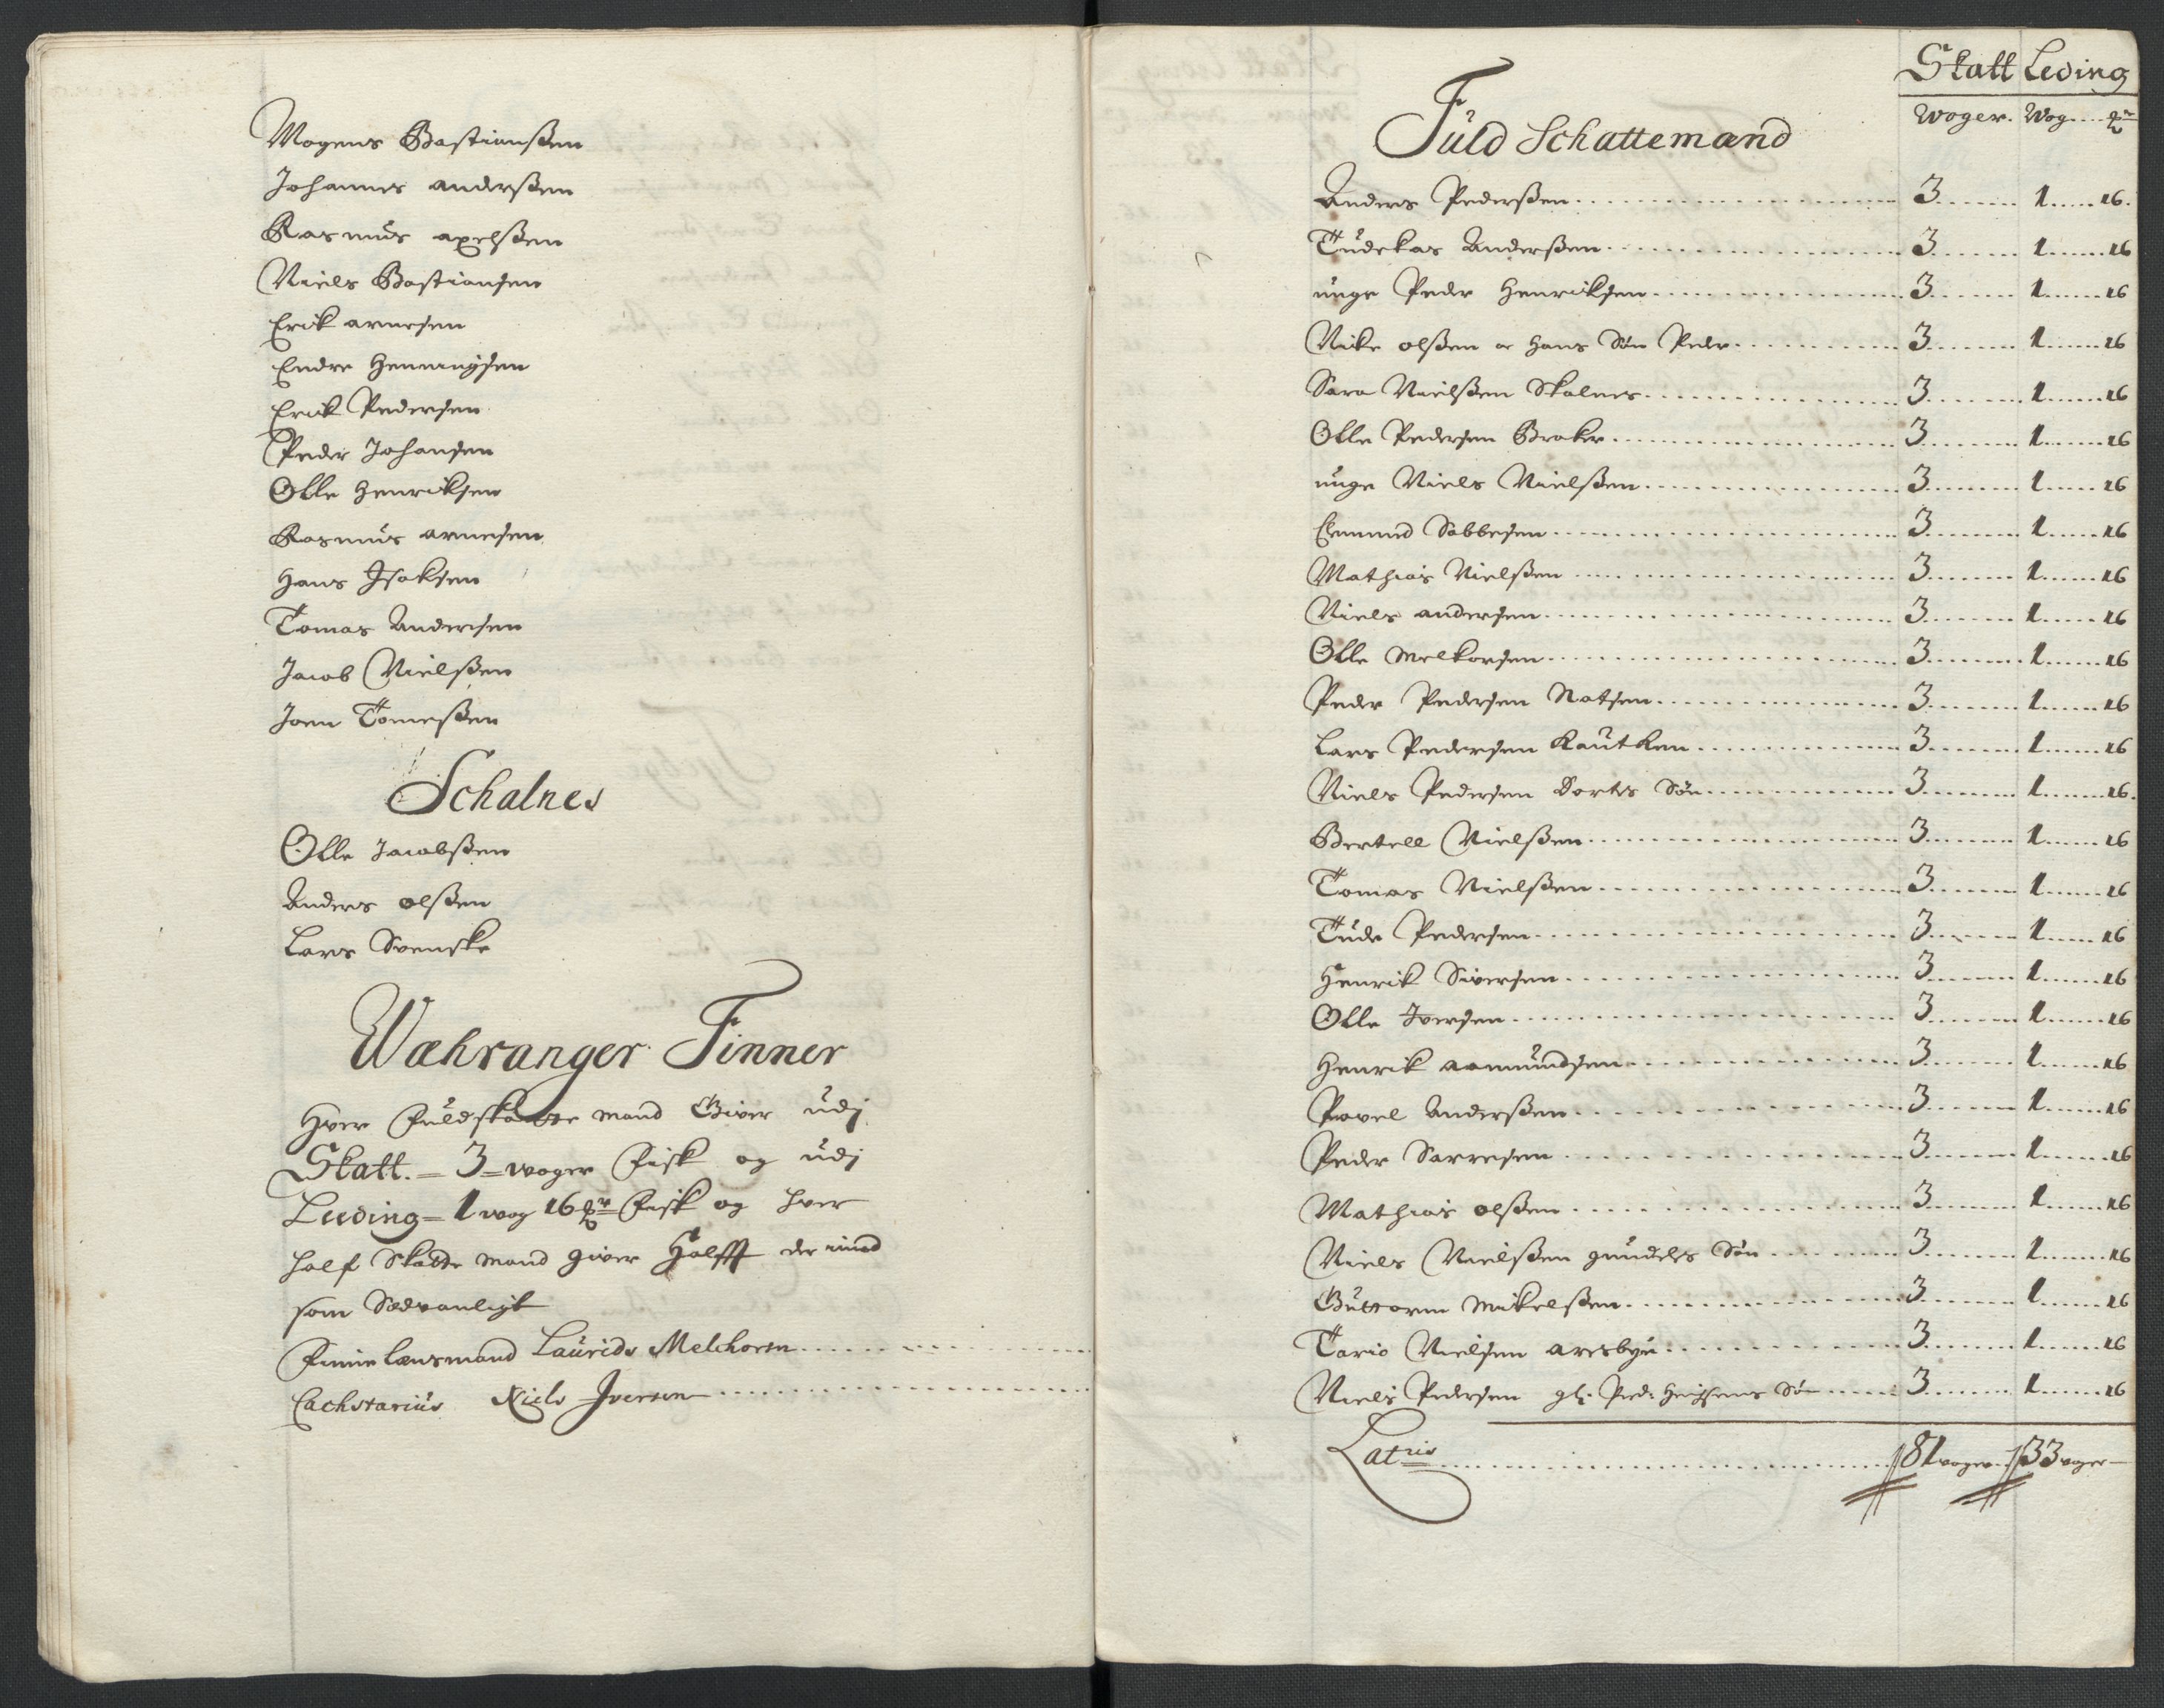 Mogens Bastianßen
Johannes anderßen
Rasmus axelßen
Niels Bastiansen
Erik arnesen
Endre Henningsen
Erik Pedersen
Peder Johansen
Olle Henriksen
Rasmus arnesen
Hans Isaksen
Tomas Andersen
Jacob Nielßen
Joen Tomeßen
Schalnes
Olle Jacobßen
Anders olßen
Lars Svenske
Wæhranger Finner
Hver fuldskatte mand Giver udj
Skatt. = 3 = woger Fisk og udj
Leeding = 1 wog 16 Fisk og hver
half Skatte mand giver Halfft der imod
som Sædvanligt
Finne lænsmand Laurids Melchorsn
Lachstarius Niels Iversen
Skatt Leding
Fuld Schattemænd
Woger. Wog.
Anders Pederßen 3 1 16
Tudekas Anderßen 3 1 16
unge Peder Henriksen 3 1 16
Nicke olßen oc hans Søn Peder 3 1 16
Sara Nielßen Skalnes 3 1 16
Olle Pedersen Braker 3 1 16
unge Niels Nielßen 3 1 16
Emund Sabbesen 3 1 16
Mathias Nielßen 3 1 16
Niels andersen 3 1 16
Olle Melkorsen 3 1 16
Peder Pedersen Natsen 3 1 16
Lars Pedersen Kautken 3 1 16
Niels Pedersen Dortes Søn 3 1 16
Bertell Nielßen 3 1 16
Tomas Nielßen 3 1 16
Tude Pedersen 3 1 16
Henrik Siversen 3 1 16
Olle Iversen 3 1 16
Henrik aamundsen 3 1 16
Povel Anderßen 3 1 16
Peder Sarresen 3 1 16
Mathias olßen 3 1 16
Niels Nielßen gundels Søn 3 1 16
Guttorm Mikelßen 3 1 16
Tario Nielsen aresbye 3 1 16
Niels Pedersen gl. Ped: Henssens Søn 3 1 16
Latris 81 woger 33 woger